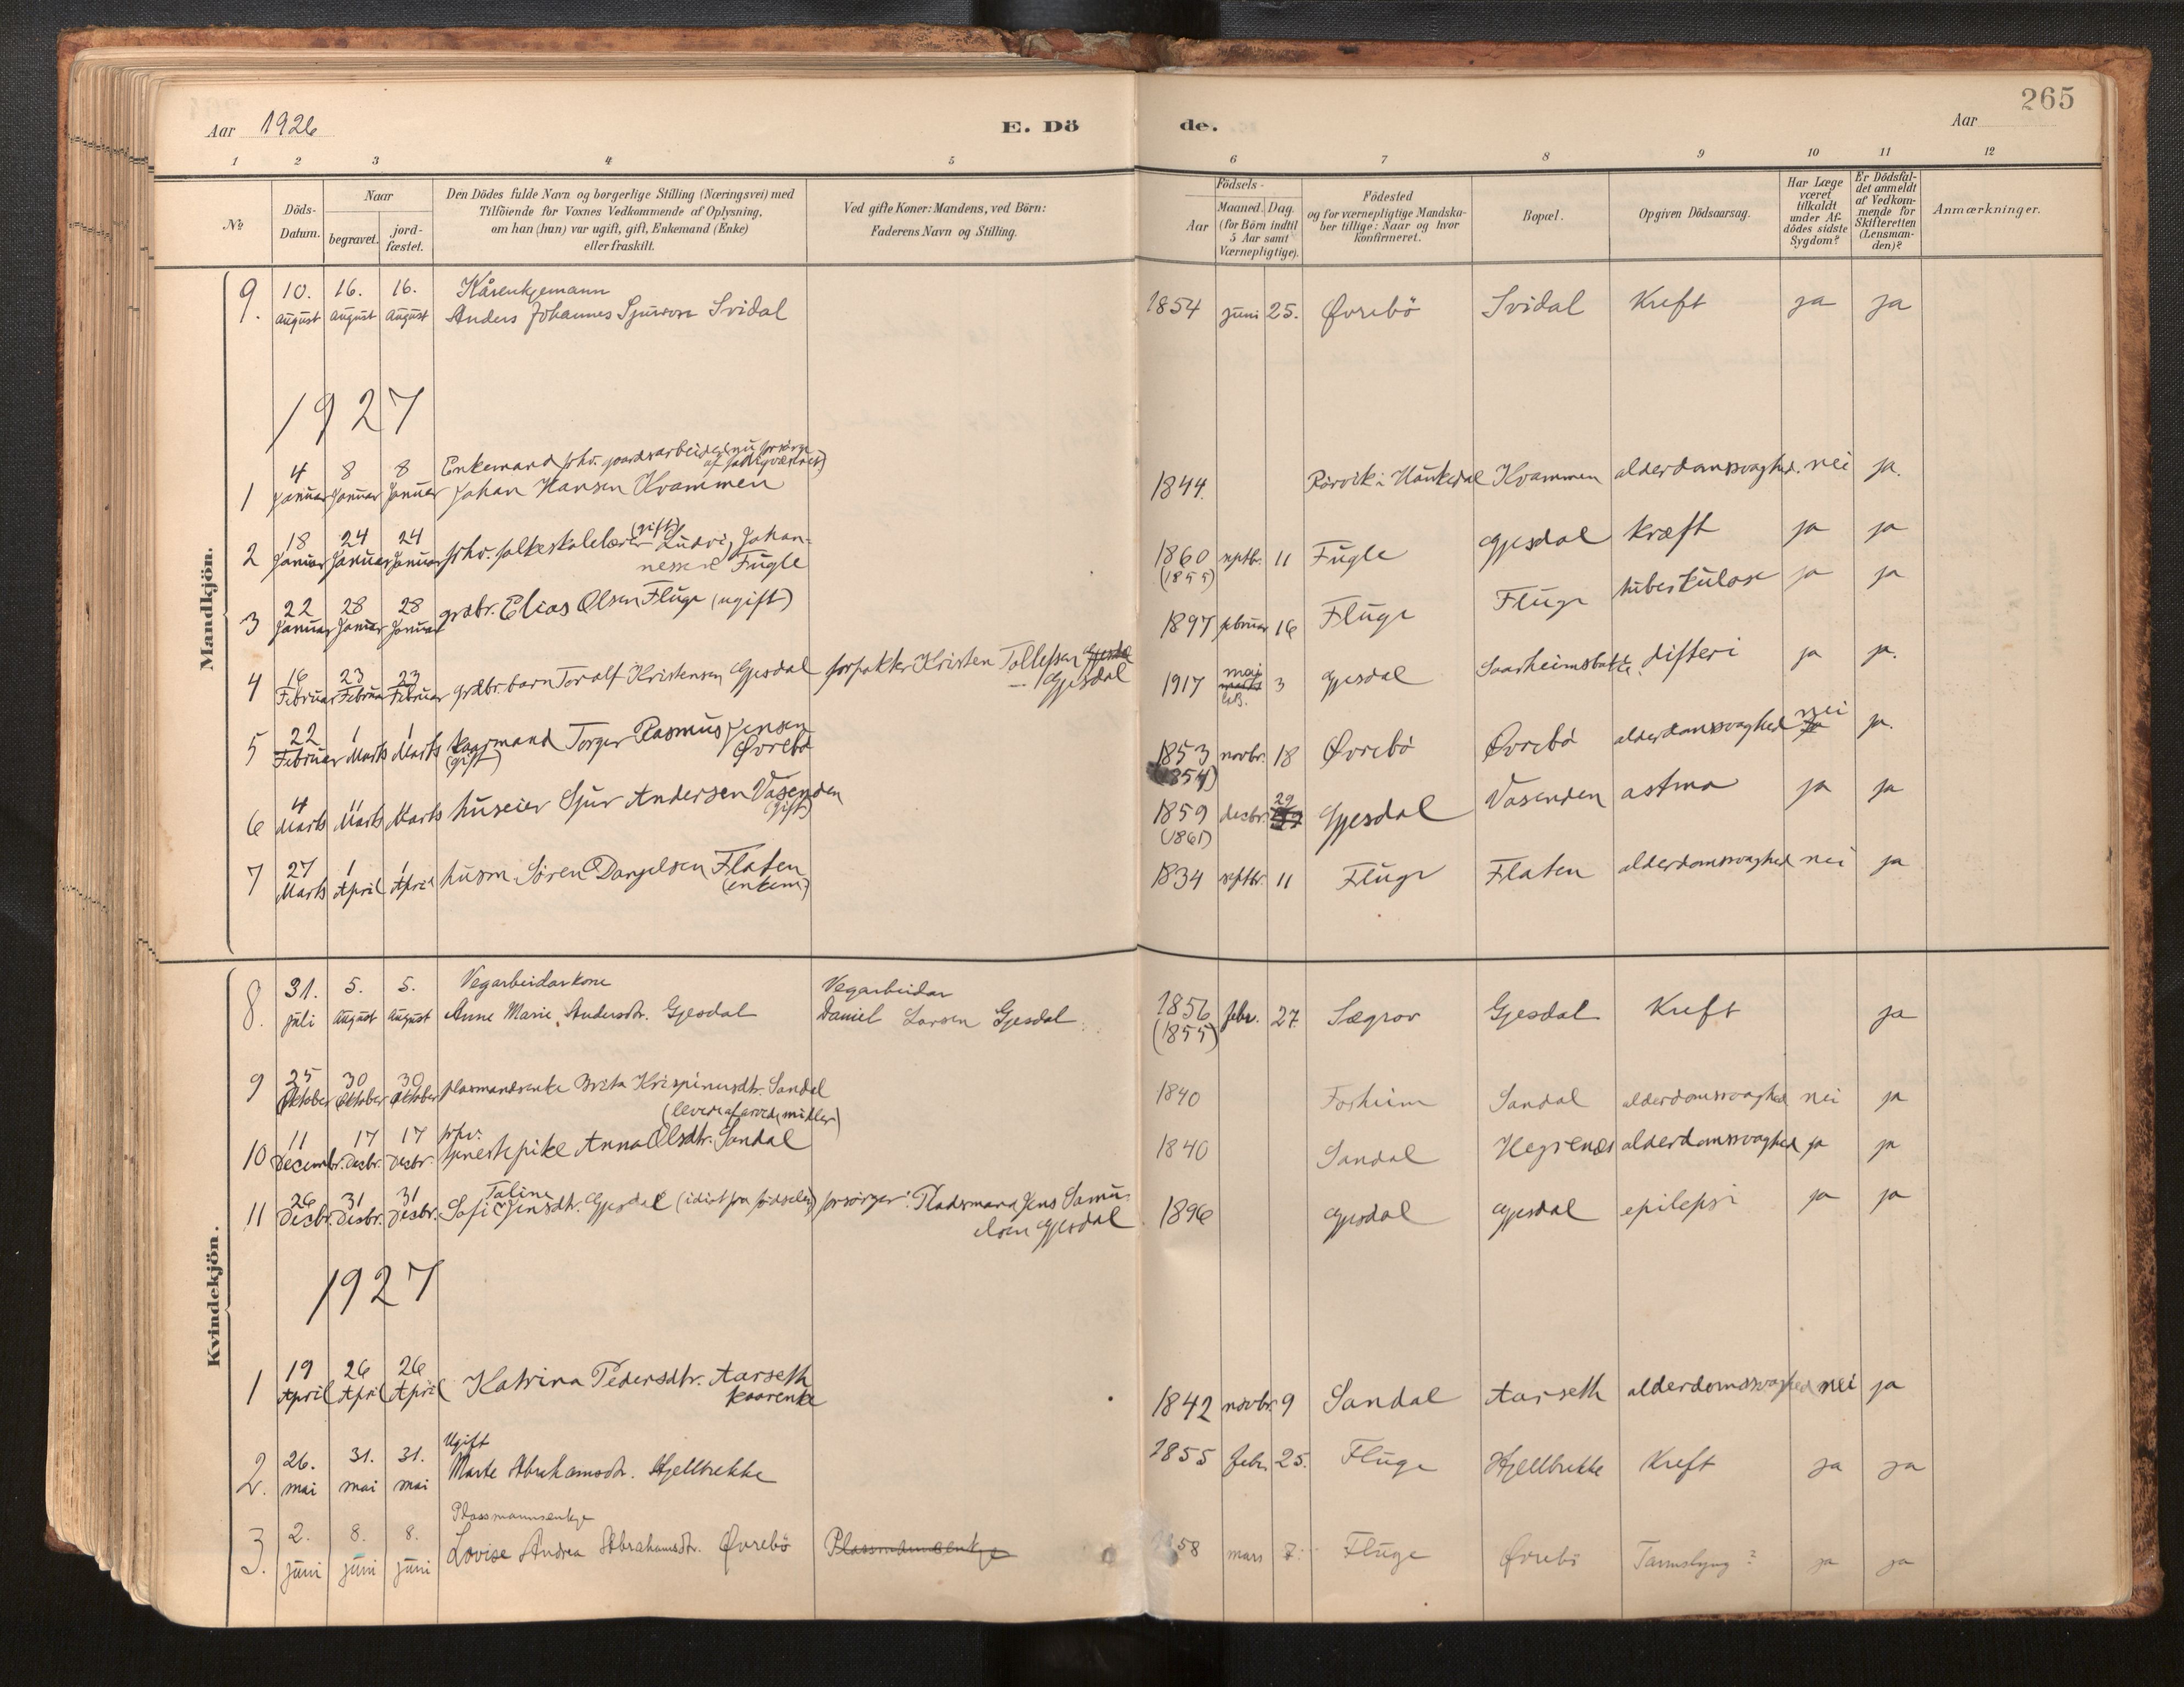 265
Aar 1926
E. Dö de.
Aar
1 2 3 4 5 6 7 8 9 10 11 12
No
Döds-Datum.
Naar
begravet.
jord-fæstet.
Den Dödes fulde Navn og borgerlige Stilling (Næringsvei) med
Tilföiende for Voxnes Vedkommende af Oplysning,
om han (hun) var ugift, gift, Enkemand (Enke)
eller fraskilt.
Ved gifte Koner: Mandens, ved Börn:
Faderens Navn og Stilling.
Födsels-
Aar
Maaned. Dag.
(for Börn indtil
5 Aar samt
Værnepligtige).
Födested
og for værnepligtige Mandska-
ber tillige: Naar og hvor
konfirmeret.
Bopæl.
Opgiven Dödsaarsag.
Har Læge
været
tilkaldt
under Af-
dödes sidste
Sygdom?
Er Dödsfal-
det anmeldt
af Vedkom-
mende for
Skifteretten
(Lensman-
den)?
Anmærkninger.
Mandkjön.
9. 10. august 16. august 16. august Kårenkjemann
Anders Johannes Sjurson Svidal 1854 juni 25. Øvrebö Svidal Kreft ja ja
1927
1 4 Januar 8 Januar 8 Januar Enkemand fhv.
Johan Hansen Kvammen 1844. Rörvik i Haukedal Kvammen alderdomssvaghed. nei ja.
2 18 Januar 24 Januar 24 Januar fhv. folkeskolelærer (gift) Ludvig Johan-
nessen Fugle 1860 (1855) septbr. 11 Fugle Gjesdal kræft ja ja
3 22 Januar 28 Januar 28 Januar grdbr. Elias Olsen Fluge (ugift) 1897 februar 16 Fluge Fluge tuberkulose ja ja
4 16 Februar 23 Februar 23 Februar grdbr. barn Toralf Kristensen Gjesdal forpakter Kristen Tollefsen Gjesdal
Gjesdal 1917 mai 3 Gjesdal difteri ja ja.
5 22 Februar 1 Marts 1 Marts kaarmand Torger Rasmus Jensen
(gift) Øvrebö 1853 (1854) novbr. 18 Øvrebö Øvrebö alderdomssvaghed nei ja ja.
6 4 Marts 11 Marts 11 Marts huseier Sjur Andersen Vasenden
(gift) 1859 (1861) decbr. 29 Gjesdal Vasenden astma ja ja
7 27 Marts 1 April 1 April husm. Sören Danjelsen Flaten
(enkem.) 1834 septbr. 11 Fluge Flaten alderdomssvaghed nei ja
Kvindekjön.
8. 31. juli 5. august 5. august Vegarbeidarkone
Anne Marie Andersdtr. Gjesdal Vegarbeidar
Daniel Larsen Gjesdal 1856 (1855) febr. 27. Sægrov Gjesdal Kreft ja
9 25 Oktober 30 Oktober 30 Oktober plasmandsenke Brita Krispinusdtr. Sandal 1840 Forheim Sandal alderdomssvaghed nei ja
10 11 Decembr. 17 Decbr. 17 Decbr. fhv. (lever af arvede midler)
tjenestepike Anna Olsdtr. Sandal 1840 Sandal Hegrenæs alderdomssvaghed ja ja
11 26 Decbr. 31 Decbr. 31 Decbr. Taline
Sofi Jensdtr. Gjesdal (idiot fra födselen) forsörger: Pladsmand Jens Samu-
elsen Gjesdal 1896 Gjesdal Gjesdal epilepsi ja ja
1927
1 19 April 26 April 26 April Katrina Pedersdtr. Aarseth
kaarenke 1842 novbr. 9 Sandal Aarseth alderdomssvaghed nei ja
2. 26. mai 31. mai 31. mai Ugift
Marte Abrahamsdtr. Hjellbrekke 1855 febr. 25. Fluge Hjellbrekke Kreft ja ja
3. 2. juni 8. juni 8. juni Plassmannsenkje
Lovise Andrea Abrahamsdtr. Øvrebö Plassmannsenkje 1858 mars 7. Fluge Øvrebö Tarmslyng? ja ja